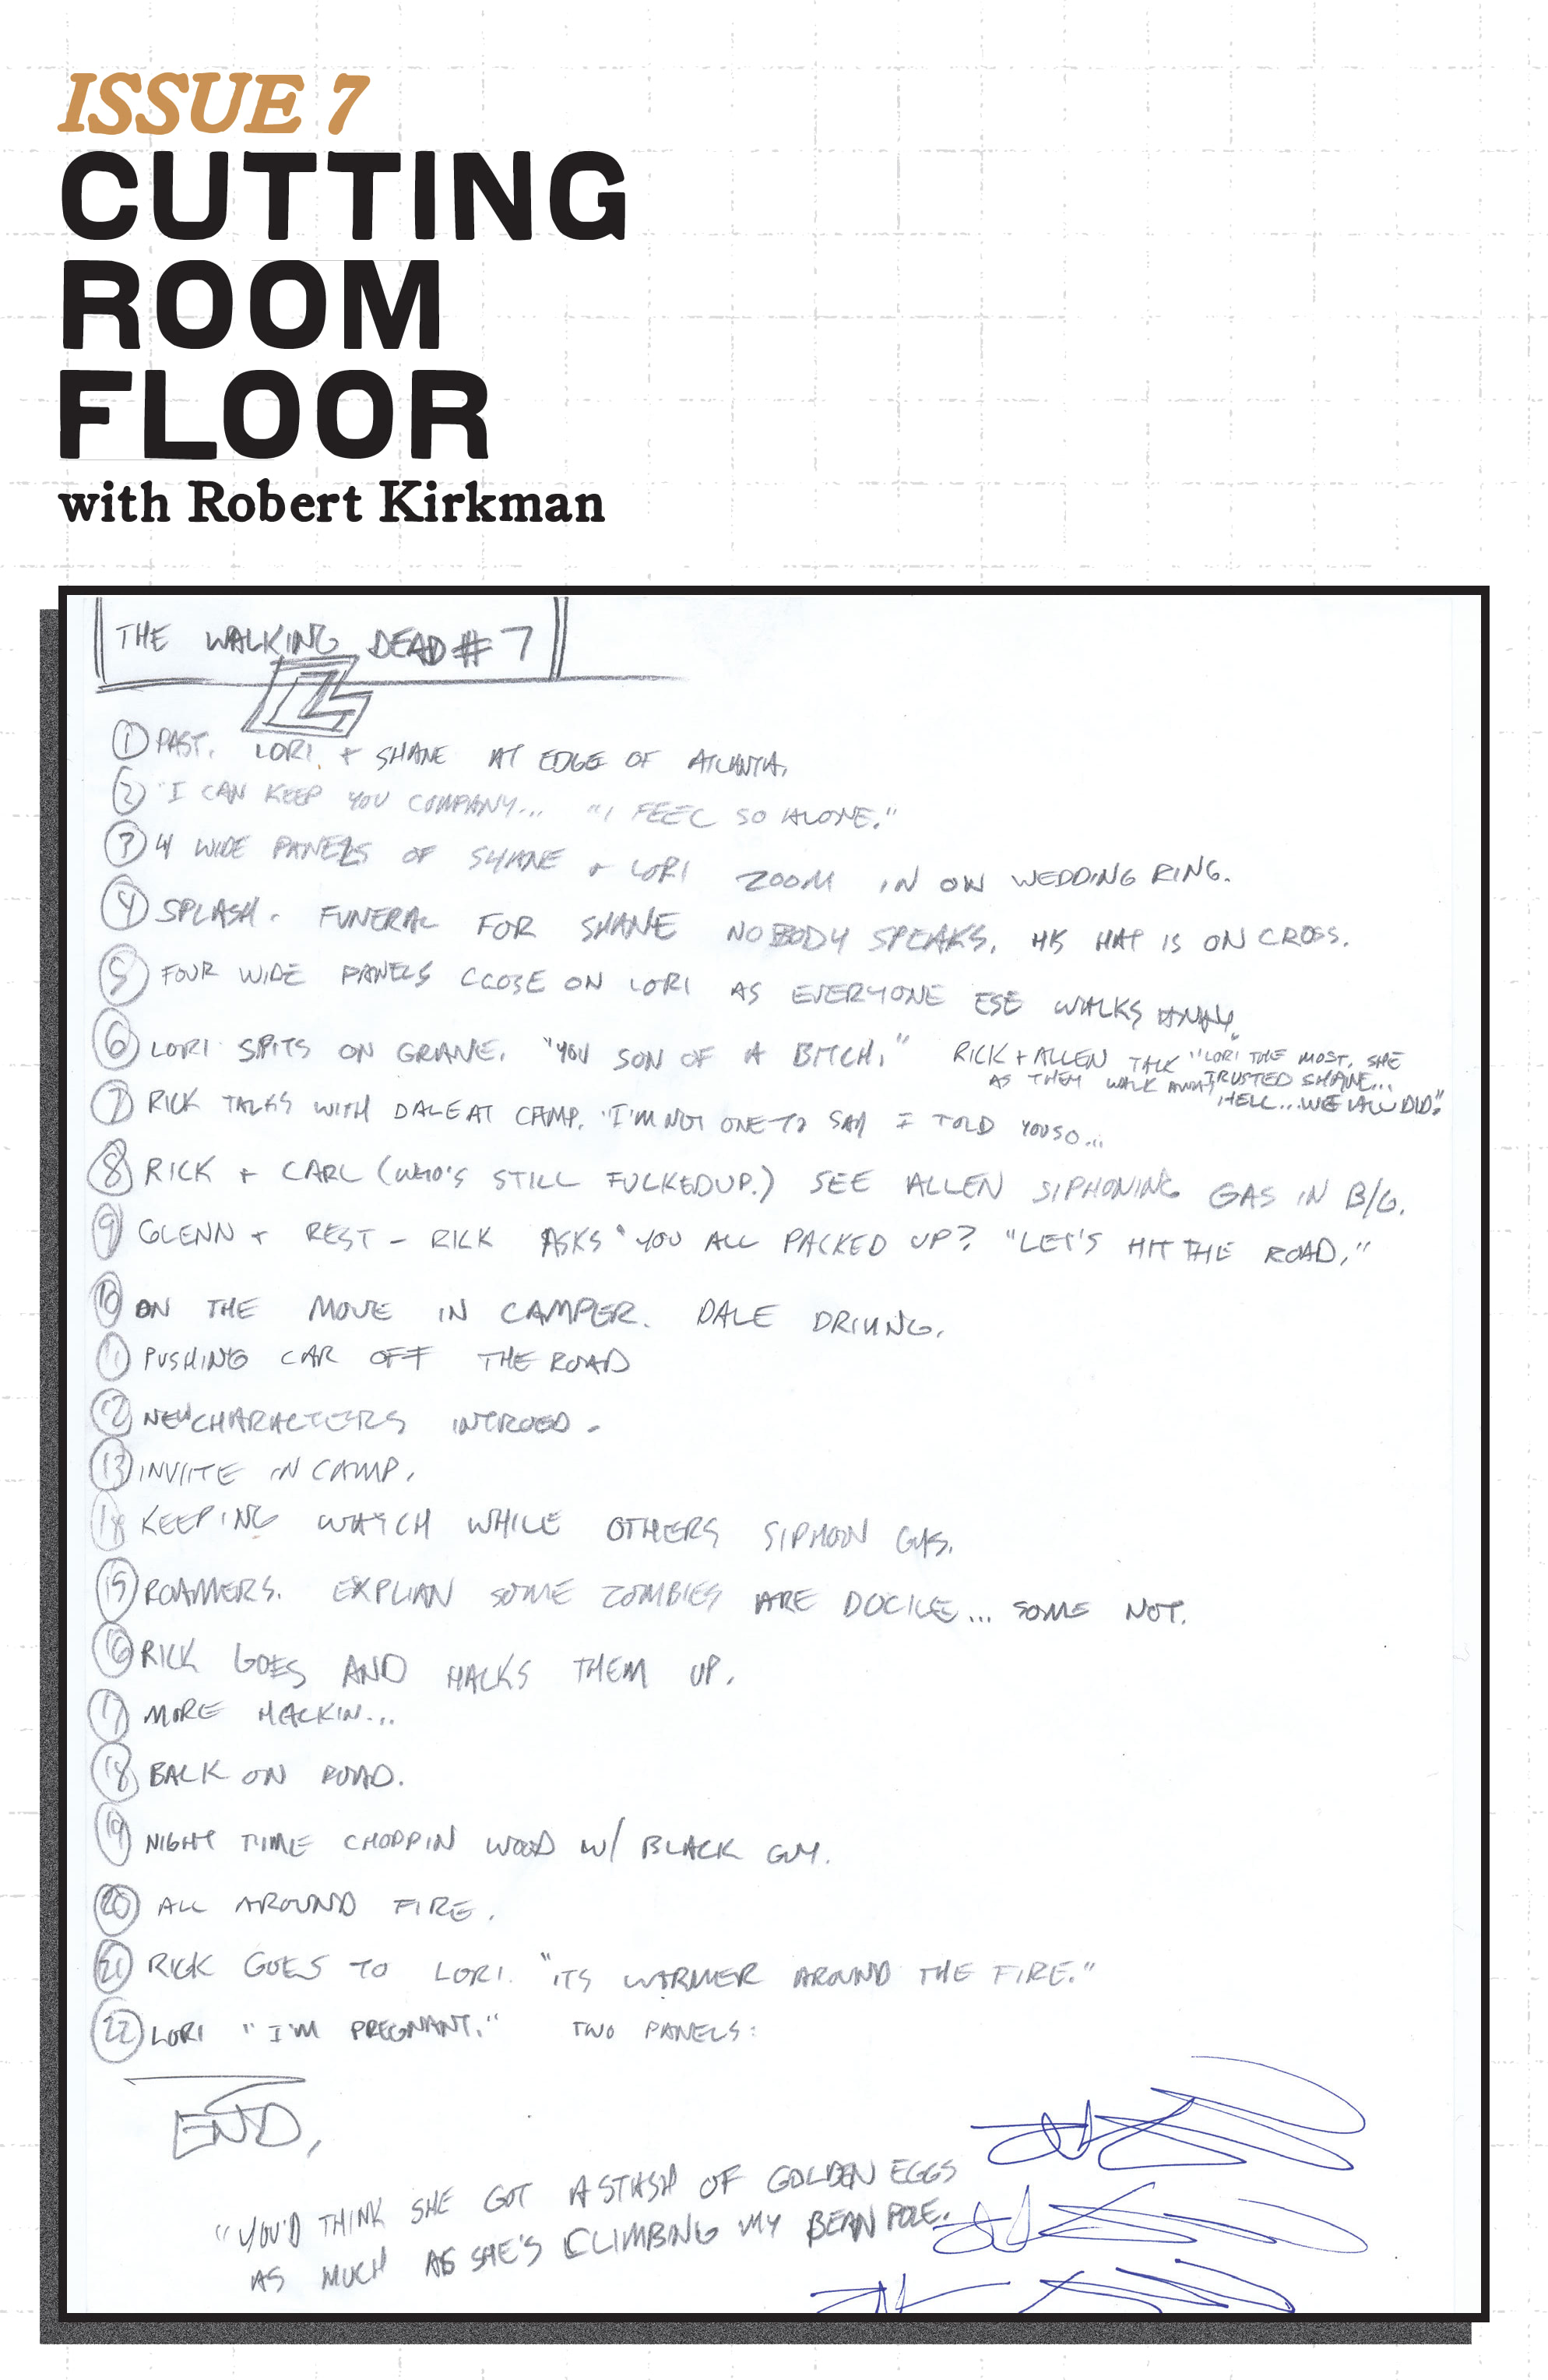 ISSUE 7
CUTTING
ROOM
FLOOR
with Robert Kirkman
THE WALKING DEAD #7
① PAST. LORI + SHANE AT EDGE OF ATLANTA.
② "I CAN KEEP YOU COMPANY... "I FEEL SO ALONE."
③ 4 WIDE PANELS OF SHANE + LORI ZOOM IN ON WEDDING RING.
④ SPLASH. FUNERAL FOR SHANE NOBODY SPEAKS. HIS HAT IS ON CROSS.
⑤ FOUR WIDE PANELS CLOSE ON LORI AS EVERYONE ESE WALKS AWAY.
⑥ LORI SPITS ON GRAVE. "YOU SON OF A BITCH." RICK + ALLEN TALK "LORI THE MOST. SHE
AS THEY WALK AWAY TRUSTED SHANE...
HELL... WE ALL DID."
⑦ RICK TALKS WITH DALE AT CAMP. "I'M NOT ONE TO SAY I TOLD YOU SO...
⑧ RICK + CARL (WHO'S STILL FUCKED UP.) SEE ALLEN SIPHONING GAS IN B/G.
⑨ GLENN + REST - RICK ASKS "YOU ALL PACKED UP? "LET'S HIT THE ROAD."
⑩ ON THE MOVE IN CAMPER. DALE DRIVING.
⑪ PUSHING CAR OFF THE ROAD
⑫ NEW CHARACTERS INTROED.
⑬ INVIITE IN CAMP.
⑭ KEEPING WATCH WHILE OTHERS SIPHON GAS.
⑮ ROAMERS. EXPLIAN SOME ZOMBIES ARE DOCILE... SOME NOT.
⑯ RICK GOES AND HACKS THEM UP.
⑰ MORE HACKIN...
⑱ BACK ON ROAD.
⑲ NIGHT TIME CHOPPIN WOOD W/ BLACK GUY.
⑳ ALL AROUND FIRE.
㉑ RICK GOES TO LORI. "ITS WARMER AROUND THE FIRE."
㉒ LORI "I'M PREGNANT." TWO PANELS:
END.
"YOU'D THINK SHE GOT A STASH OF GOLDEN EGGS
AS MUCH AS SHE'S CLIMBING MY BEAN POLE.